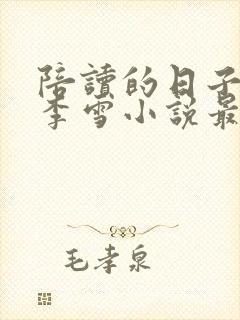 陪讀的日子
李雪小說最
毛孝泉